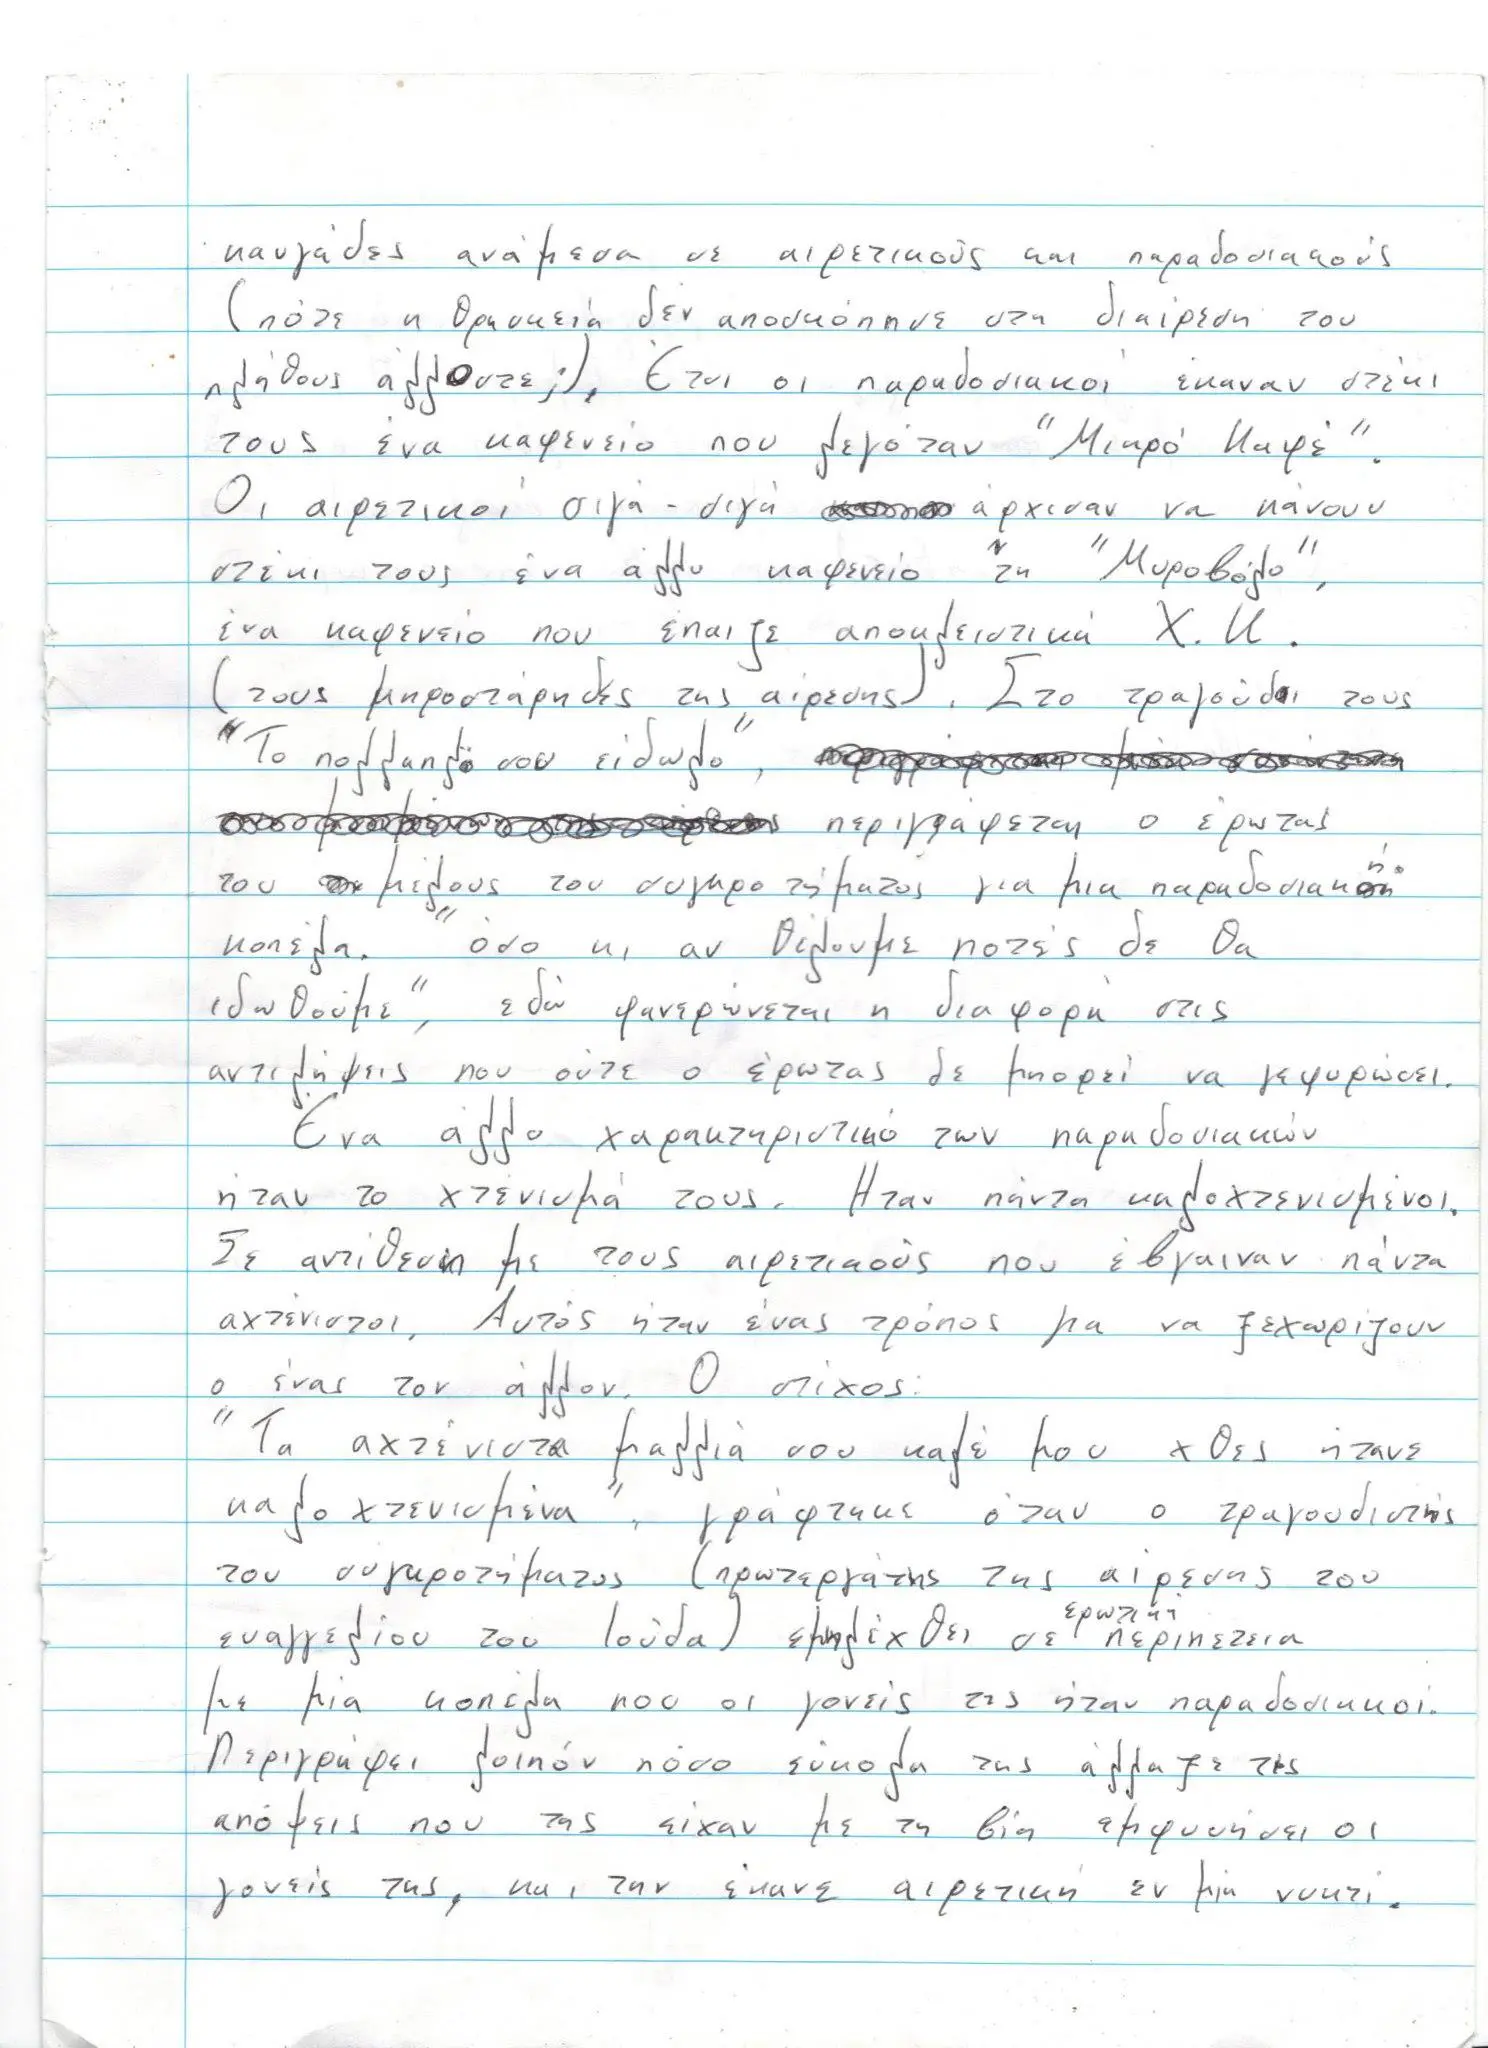 καυγάδες ανάμεσα σε αιρετικούς και παραδοσιακούς
(πότε η θρησκεία δεν αποσκόπησε στη διαίρεση του
πλήθους άλλωστε;). Έτσι οι παραδοσιακοί έκαναν στέκι
τους ένα καφενείο που λεγόταν "Μικρό Καφέ".
Οι αιρετικοί σιγά-σιγά άρχισαν να κάνουν
στέκι τους ένα άλλο καφενείο τη "Μυροβόλο",
ένα καφενείο που έπαιζε αποκλειστικά Χ.Κ.
(τους μπροστάρηδες της αίρεσης). Στο τραγούδι τους
"Το πολλαπλό σου είδωλο",
περιγράφεται ο έρωτας
του μέλους του συγκροτήματος για μια παραδοσιακή
κοπέλα. "όσο κι αν θέλουμε ποτές δε θα
ιδωθούμε", εδώ φανερώνεται η διαφορά στις
αντιλήψεις που ούτε ο έρωτας δε μπορεί να γεφυρώσει.
Ένα άλλο χαρακτηριστικό των παραδοσιακών
ήταν το χτένισμά τους. Ήταν πάντα καλοχτενισμένοι.
Σε αντίθεση με τους αιρετικούς που έβγαιναν πάντα
αχτένιστοι. Αυτός ήταν ένας τρόπος για να ξεχωρίζουν
ο ένας τον άλλον. Ο στίχος:
"Τα αχτένιστα μαλλιά σου καλέ μου χθες ήτανε
καλοχτενισμένα", γράφτηκε όταν ο τραγουδιστής
του συγκροτήματος (πρωτεργάτης της αίρεσης του
ευαγγελίου του Ιούδα) εμπλέχθει σε ερωτική περιπέτεια
με μία κοπέλα που οι γονείς της ήταν παραδοσιακοί.
Περιγράφει λοιπόν πόσο εύκολα της άλλαξε τις
απόψεις που της είχαν με τη βία εμφυσήσει οι
γονείς της, και την έκανε αιρετική εν μία νυκτί.